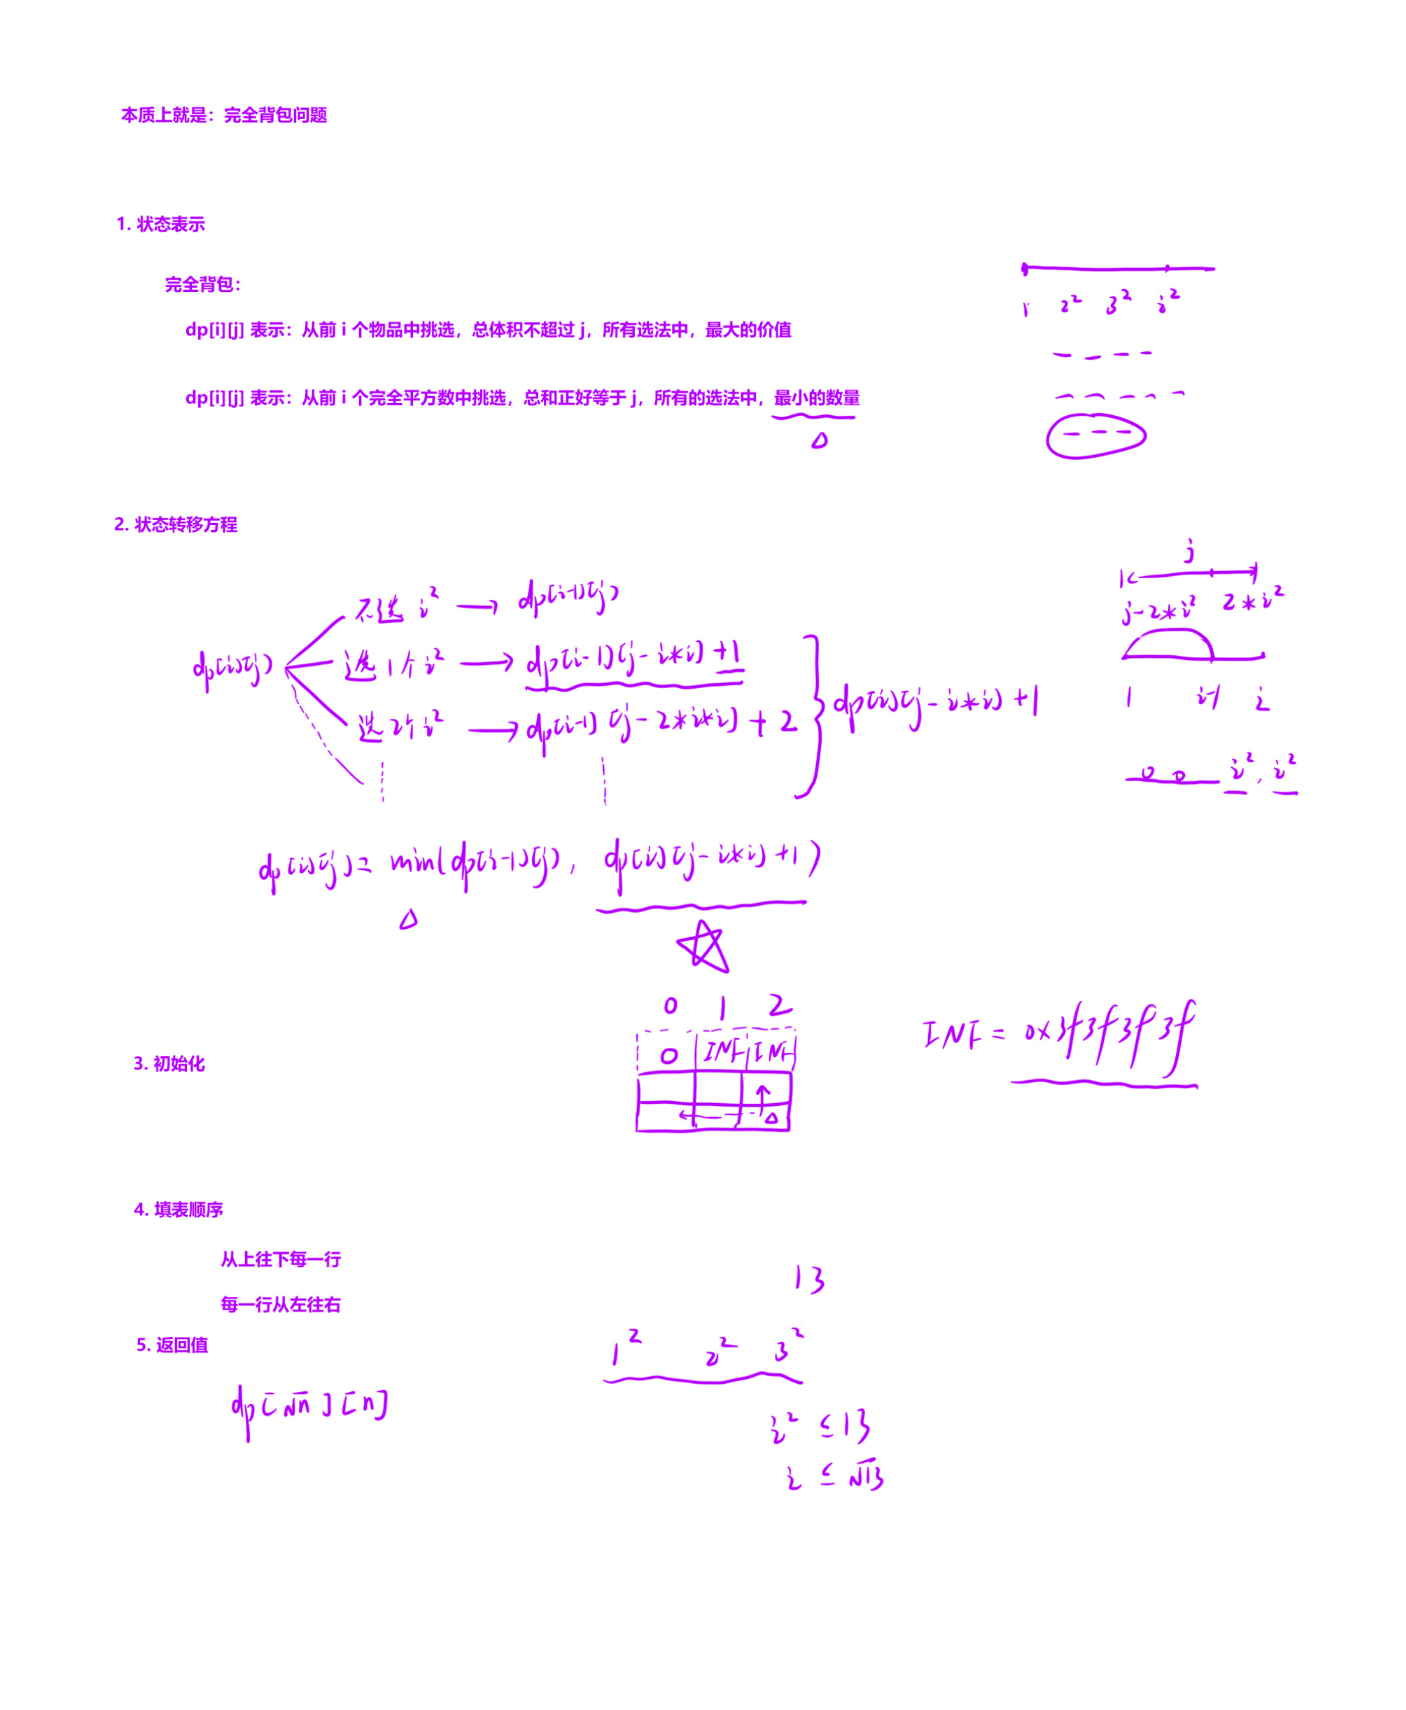 本质上就是：完全背包问题
1. 状态表示
完全背包：
dp[i][j] 表示：从前 i 个物品中挑选，总体积不超过 j，所有选法中，最大的价值
1 2² 3² i²
dp[i][j] 表示：从前 i 个完全平方数中挑选，总和正好等于 j，所有的选法中，最小的数量
2. 状态转移方程
dp[i][j]
不选 i² → dp[i-1][j]
选 1个 i² → dp[i-1][j-i*i]+1
选 2个 i² → dp[i-1][j-2*i*i]+2
dp[i][j-i*i]+1
j
j-2*i² 2*i²
1 i-1 i
i², i²
dp[i][j] = min(dp[i-1][j], dp[i][j-i*i]+1)
3. 初始化
0 1 2
0 INF INF
INF = 0x3f3f3f3f
4. 填表顺序
从上往下每一行
每一行从左往右
5. 返回值
dp[√n][n]
13
1² 2² 3²
i² ≤ 13
i ≤ √13